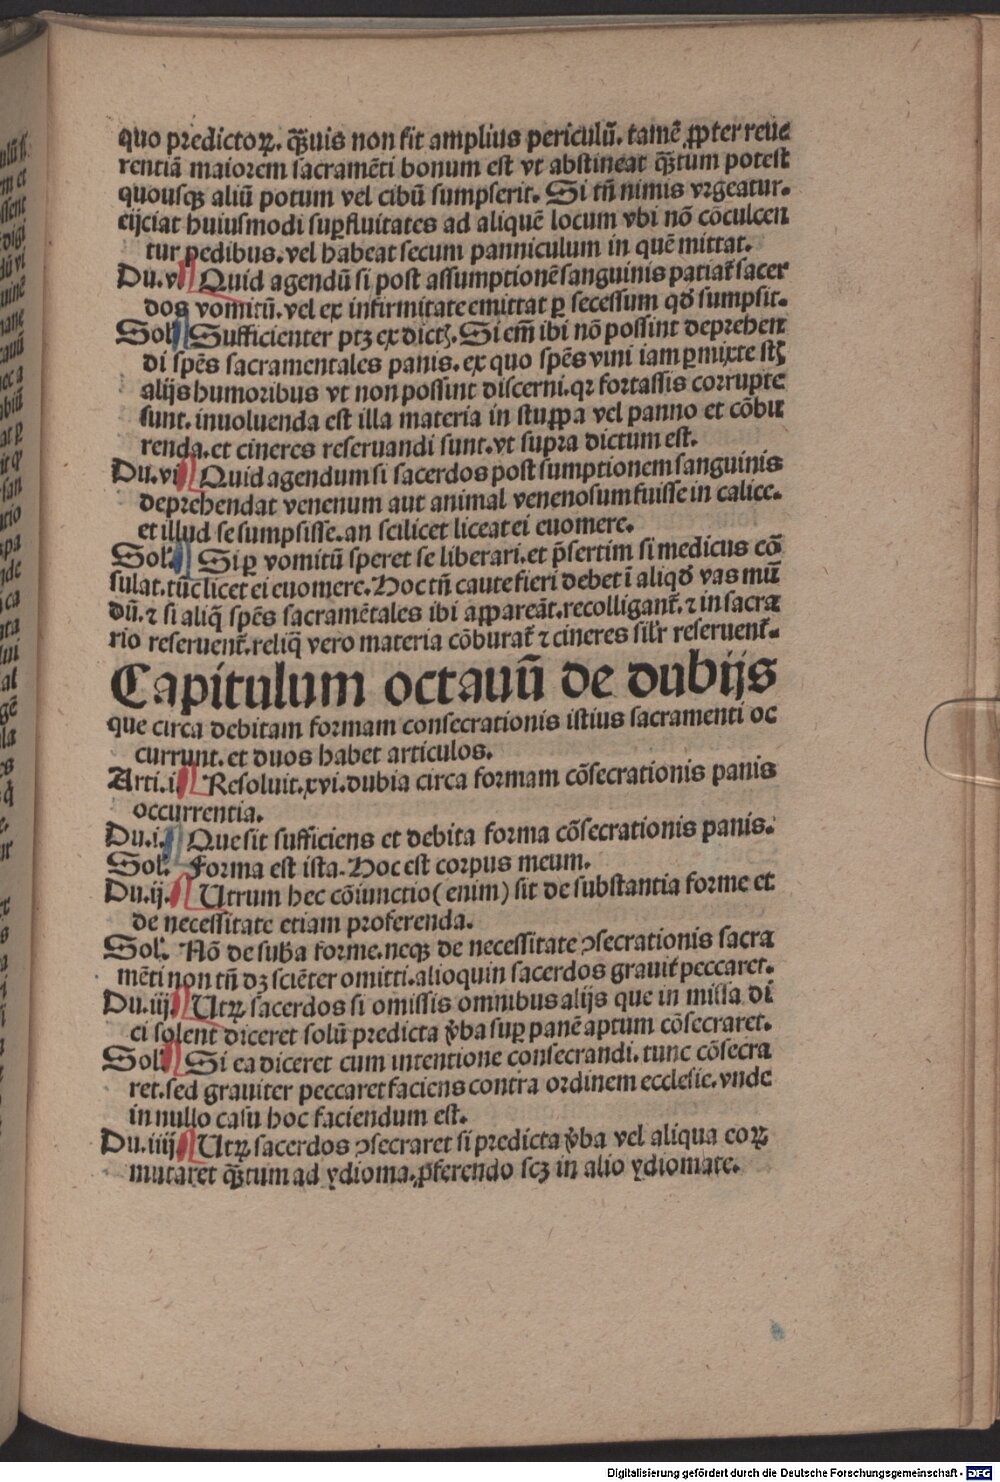 quo predictoꝝ. qꝫuis non fit amplius periculū. tamē ꝓpter reue
rentiā maiorem sacramēti bonum est vt abstineat qꝫtum potest
quousqꝫ aliū potum vel cibū sumpserit. Si tñ nimis vrgeatur.
eijciat huiusmodi suꝑfluitates ad aliquē locum vbi nō cōculcen
tur pedibus. vel habeat secum panniculum in quē mittat.
Du. v Quid agendū si post assumptionē sanguinis patiat᷑ sacer
dos vomitū. vel ex infirmitate emittat ꝑ secessum qđ sumpsit.
Sol. Sufficienter ptꝫ ex dictꝭ. Si em̄ ibi nō possint deprehen
di sp̄es sacramentales panis. ex quo sp̄es vini iam ꝑmixte st̄
alijs humoribus vt non possint discerni. qꝛ fortassis corrupte
sunt. inuoluenda est illa materia in stuppa vel panno et cōbu
renda. et cineres reseruandi sunt. vt supra dictum est.
Du. vi Quid agendum si sacerdos post sumptionem sanguinis
deprehendat venenum aut animal venenosum fuisse in calice.
et illud se sumpsisse. an scilicet liceat ei euomere.
Sol. Si ꝑ vomitū speret se liberari. et p̄sertim si medicus cō
sulat. tūc licet ei euomere. Hoc tñ caute fieri debet ī aliqđ vas mū
dū. ⁊ si aliq̄ sp̄es sacramētales ibi appareāt. recolligant᷑. ⁊ in sacra
rio reseruent᷑. reliq̄ vero materia cōburat᷑ ⁊ cineres silr reseruent᷑.
Capitulum octauū de dubijs
que circa debitam formam consecrationis istius sacramenti oc
currunt. et duos habet articulos.
Arti. i Resoluit. xvi. dubia circa formam cōsecrationis panis
occurrentia.
Du. i. Que sit sufficiens et debita forma cōsecrationis panis.
Sol. Forma est ista. Hoc est corpus meum.
Du. ij. Utrum hec cōiunctio (enim) sit de substantia forme et
de necessitate etiam proferenda.
Sol. Nō de suba forme. neqꝫ de necessitate ꝯsecrationis sacra
mēti non tñ dꝫ sciēter omitti. alioquin sacerdos grauit᷑ peccaret.
Du. iij. Utꝝ sacerdos si omissis omnibus alijs que in missa di
ci solent diceret solū predicta v̄ba suꝑ panē aptum cōsecraret.
Sol. Si ea diceret cum intentione consecrandi. tunc cōsecra
ret. sed grauiter peccaret faciens contra ordinem ecclesie. vnde
in nullo casu hoc faciendum est.
Du. iiij Utꝝ sacerdos ꝯsecraret si predicta v̄ba vel aliqua eoꝝ
mutaret qꝫtum ad ydioma. ꝓferendo scꝫ in alio ydiomate.
Digitalisierung gefördert durch die Deutsche Forschungsgemeinschaft - DFG